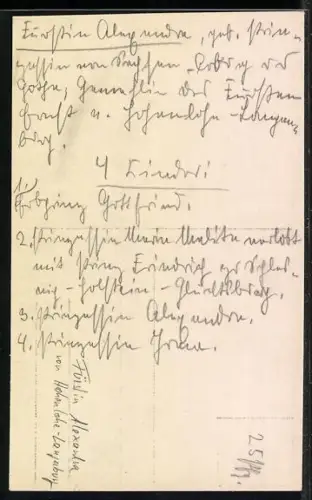 Fürstin Alexandra, geb. Prin-
zessin von Sachsen-Coburg und
Gotha, Gemahlin des Fürsten
Ernst v. Hohenlohe-Langen-
burg.
4 Kinder:
1. Erbprinz Gottfried.
2. Prinzessin Marie Melita verlobt
mit Prinz Friedrich zu Schles-
wig-Holstein-Glücksburg.
3. Prinzessin Alexandra.
4. Prinzessin Irma.
Fürstin Alexandra
von Hohenlohe-Langenburg